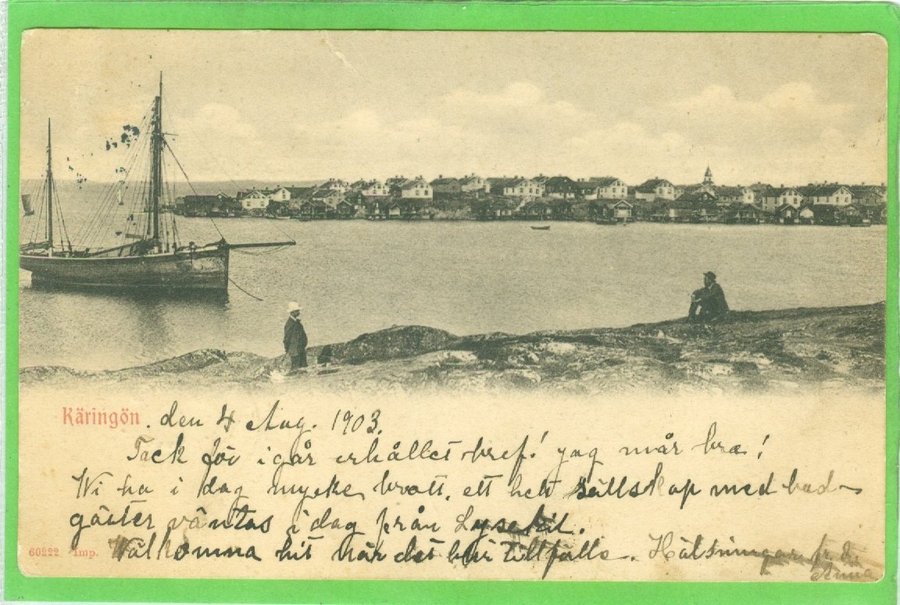 Käringön. den 4 Aug. 1903.
Tack för igår erhållet bref! jag mår bra!
Wi ha i dag mycke brott. ett helt sällskap med bad-
gäster väntas i dag från Lysekil.
60222 Imp. Wälkomna hit när det blir tillfälle. Hälsningar fr.
Anna